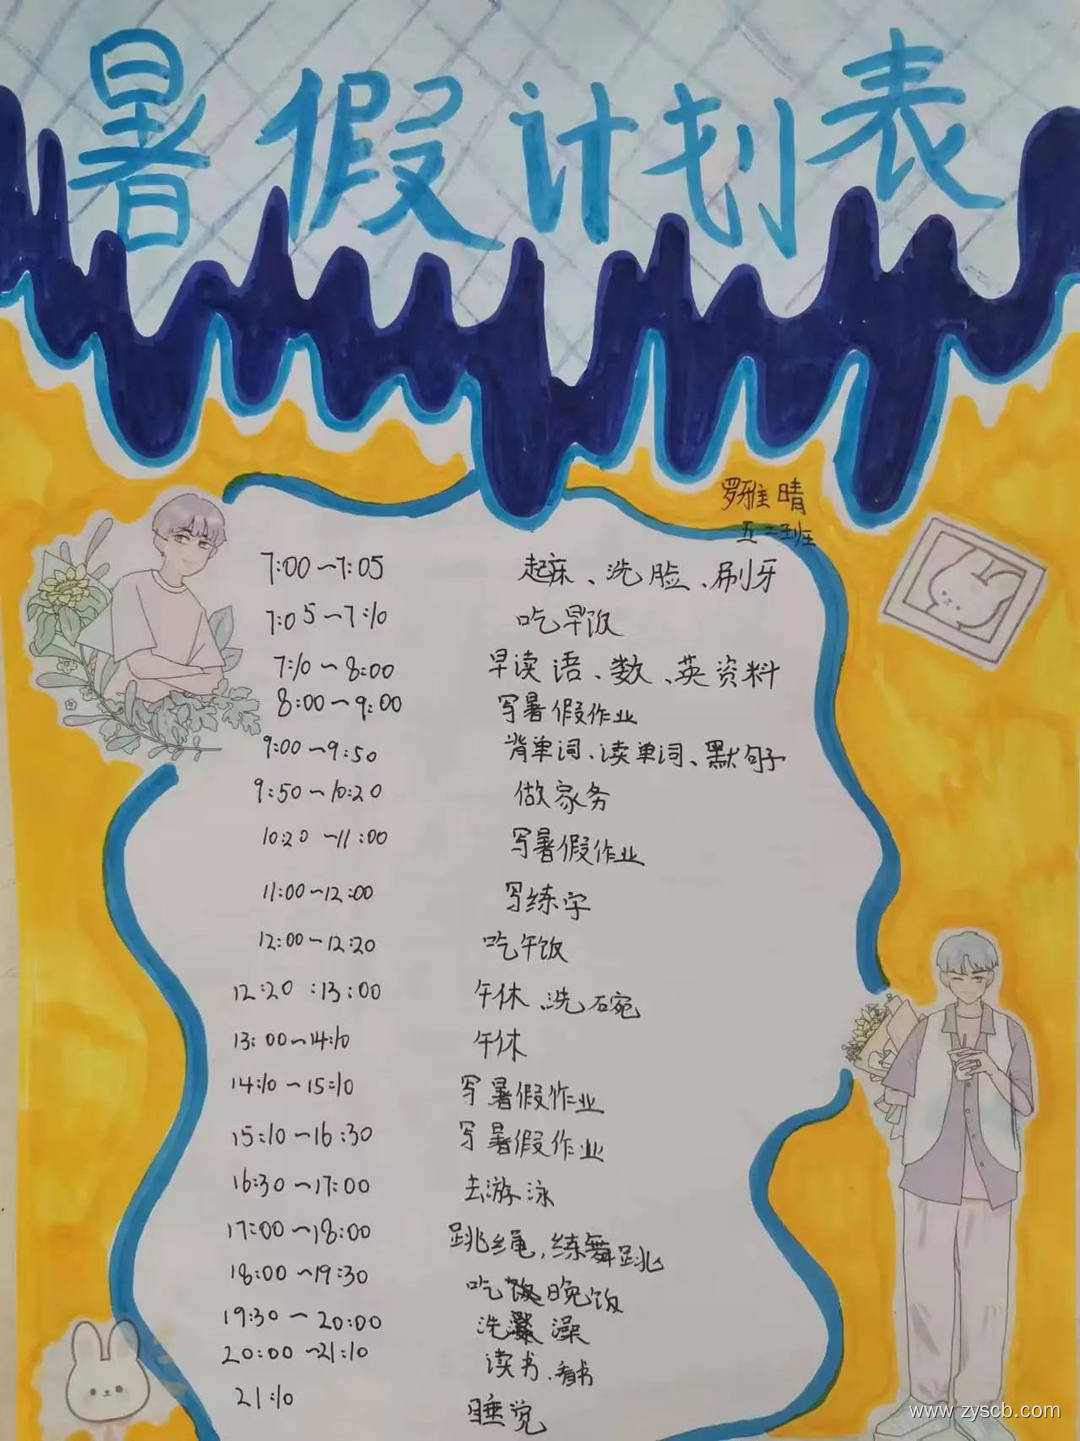 暑假计划表
罗雅晴
五二班
7:00~7:05 起床、洗脸、刷牙
7:05~7:10 吃早饭
7:10~8:00 早读语、数、英资料
8:00~9:00 写暑假作业
9:00~9:50 背单词、读单词、默句子
9:50~10:20 做家务
10:20~11:00 写暑假作业
11:00~12:00 写练字
12:00~12:20 吃午饭
12:20:13:00 午休、洗碗
13:00~14:10 午休
14:10~15:10 写暑假作业
15:10~16:30 写暑假作业
16:30~17:00 去游泳
17:00~18:00 跳绳,练舞跳
18:00~19:30 吃晚饭
19:30~20:00 洗澡
20:00~21:10 读书、看书
21:10 睡觉
www.zyscb.com